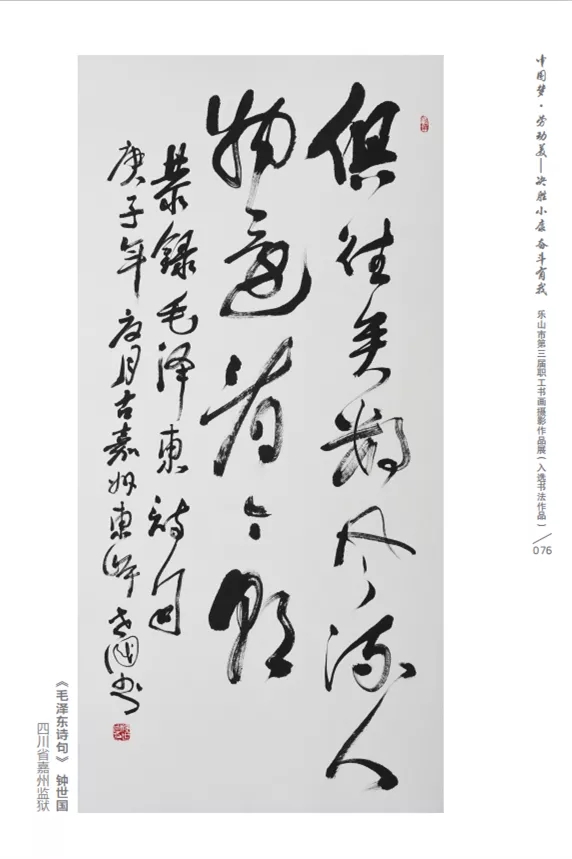 中国梦·劳动美——决胜小康 奋斗有我
乐山市第三届职工书画摄影作品展（入选书法作品）
076
俱往矣數风流人
物還看今朝
恭録毛泽東詩句
庚子年夏月古嘉州東岸世國書
《毛泽东诗句》 钟世国
四川省嘉州监狱